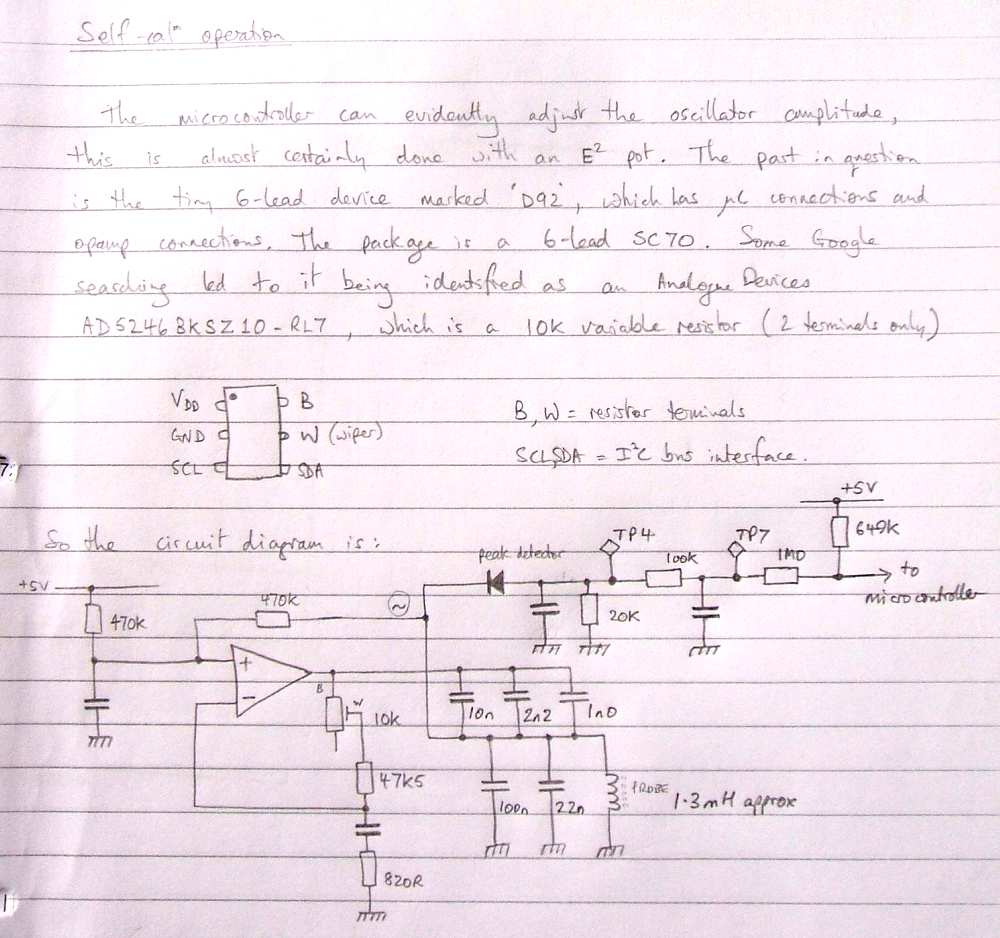 Self-calⁿ operation
The microcontroller can evidently adjust the oscillator amplitude,
this is almost certainly done with an E² pot. The part in question
is the tiny 6-lead device marked 'D92', which has µC connections and
opamp connections. The package is a 6-lead SC70. Some Google
searching led to it being identified as an Analogue Devices
AD5246BKSZ10-RL7, which is a 10K variable resistor (2 terminals only)
VDD
B
GND
W (wiper)
SCL
SDA
B, W = resistor terminals
SCL,SDA = I²C bus interface.
7:
So the circuit diagram is:
+5V
649K
TP4
TP7
peak detector
100k
1M0
to
microcontroller
20K
+5V
470K
470k
~
+
−
B
W
10k
10n
2n2
1n0
47K5
100n
22n
PROBE
1.3mH approx
820R
1